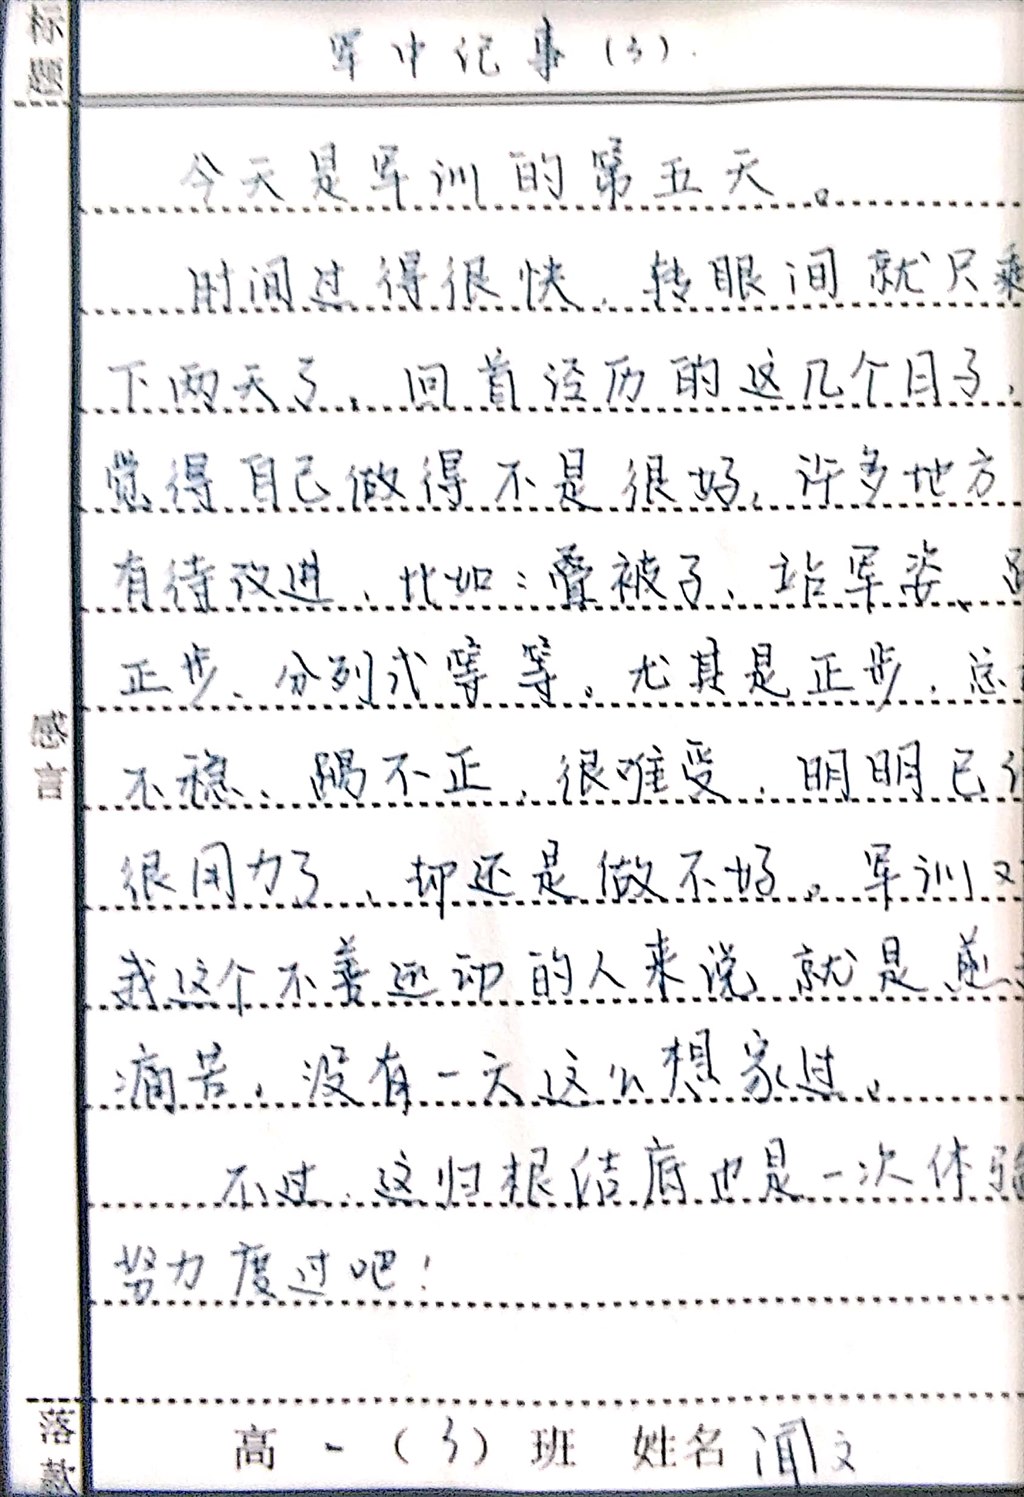 标题
军中记事（3）.
今天是军训的第五天。
时间过得很快，转眼间就只剩
下两天了，回首经历的这几个日子，
觉得自己做得不是很好，许多地方
有待改进，比如：叠被子、站军姿、
正步、分列式等等。尤其是正步，总
不稳、踢不正，很难受，明明已
很用力了，却还是做不好。军训对
我这个不善运动的人来说就是
痛苦，没有一天这么想家过。
不过，这归根结底也是一次体验
努力度过吧！
感言
落款
高一（3）班 姓名 闻文